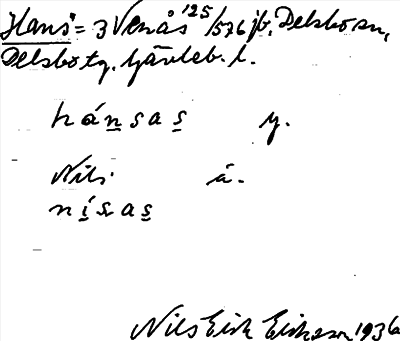 Hans= 3 Venås 125/576 jb, Delsbo sn,
Delsbo tg. Gävleb. l.
hánsas y.
Nils· á.
nísas
Nils Erik Erikson 1936